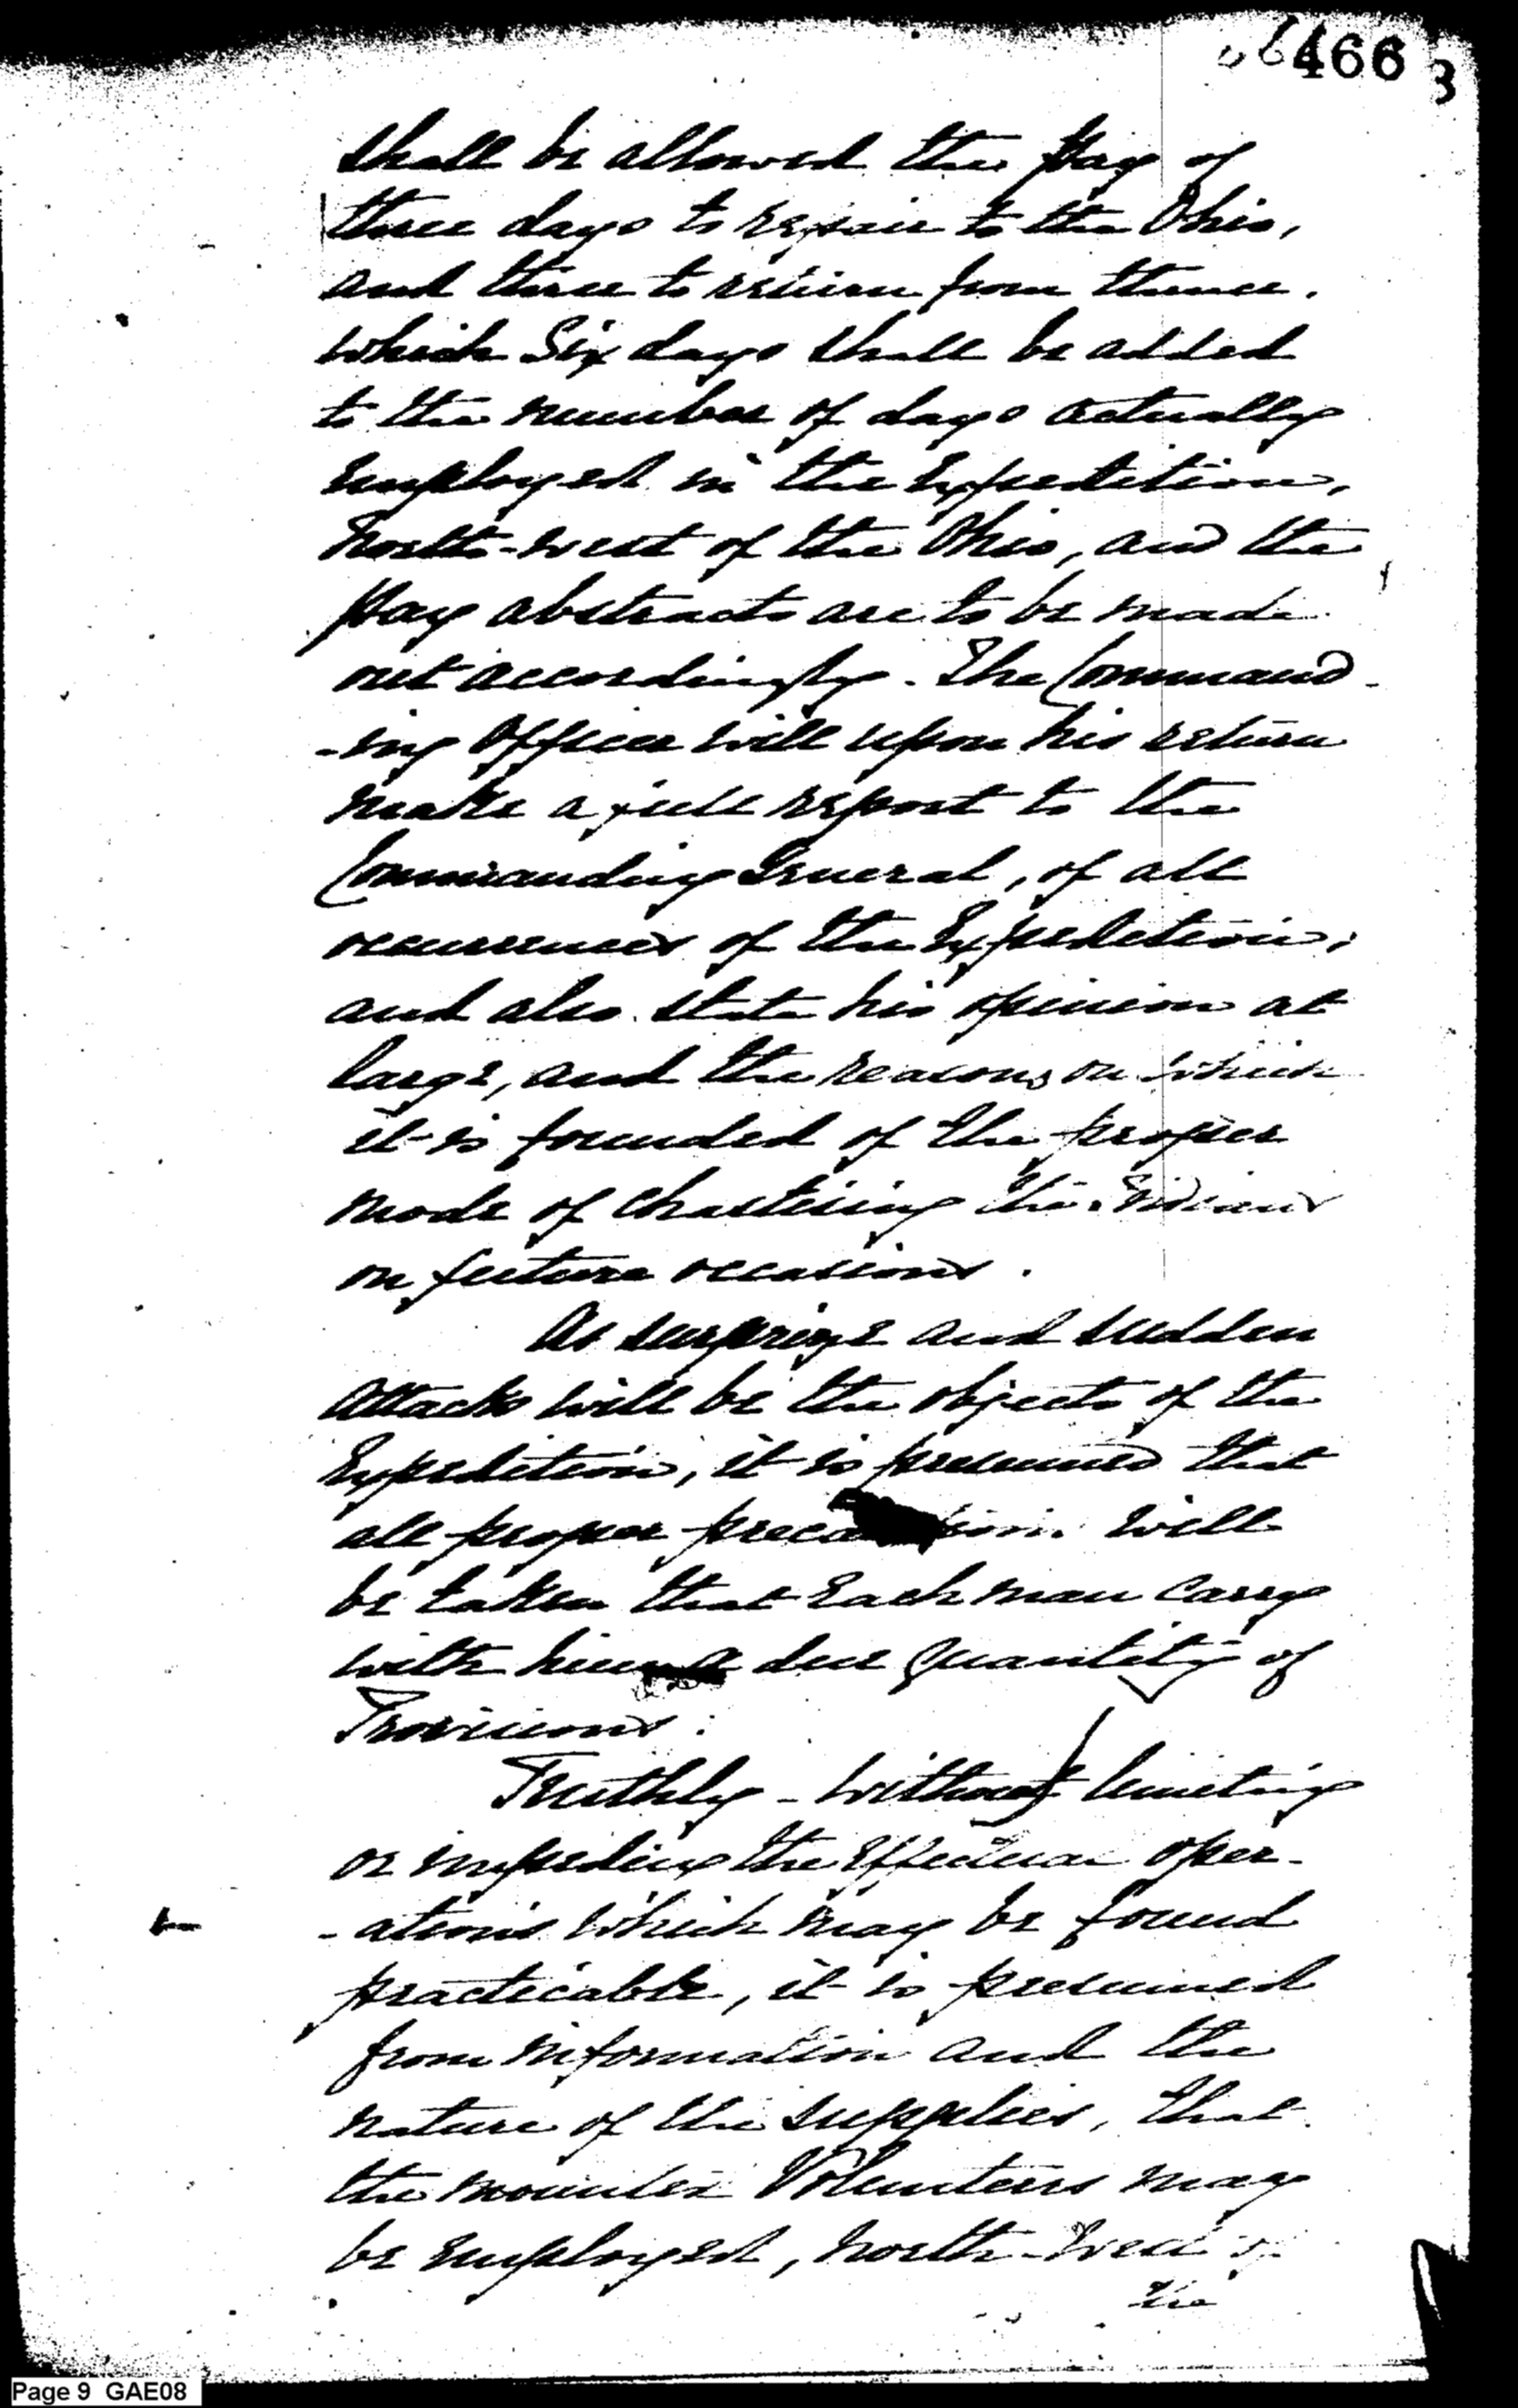 466 3
shall be allowed the pay of
three days to repair to the Ohio,
and three to return from thence.
which Six days shall be added
to the number of days actually
employed in the Expedition,
North-west of the Ohio, and the
pay abstracts are to be made
out accordingly. The Command-
-ing Officer will upon his return
make a full report to the
Commanding General, of all
occurrences of the Expedition;
and also state his opinion at
large, and the reasons on which
it is founded of the proper
mode of chastising the Indians
on future occasions.
As surprize and sudden
attacks will be the objects of the
Expedition, it is presumed that
all proper will
be taken that each man carry
with him a due quantity of
Provisions.
- without limiting
or impeding the effectual oper-
-ations which may be found
practicable, it is presumed
from information and the
nature of the supplies, that
the mounted Volunteers may
be employed, north-west of
the
Page 9 GAE08